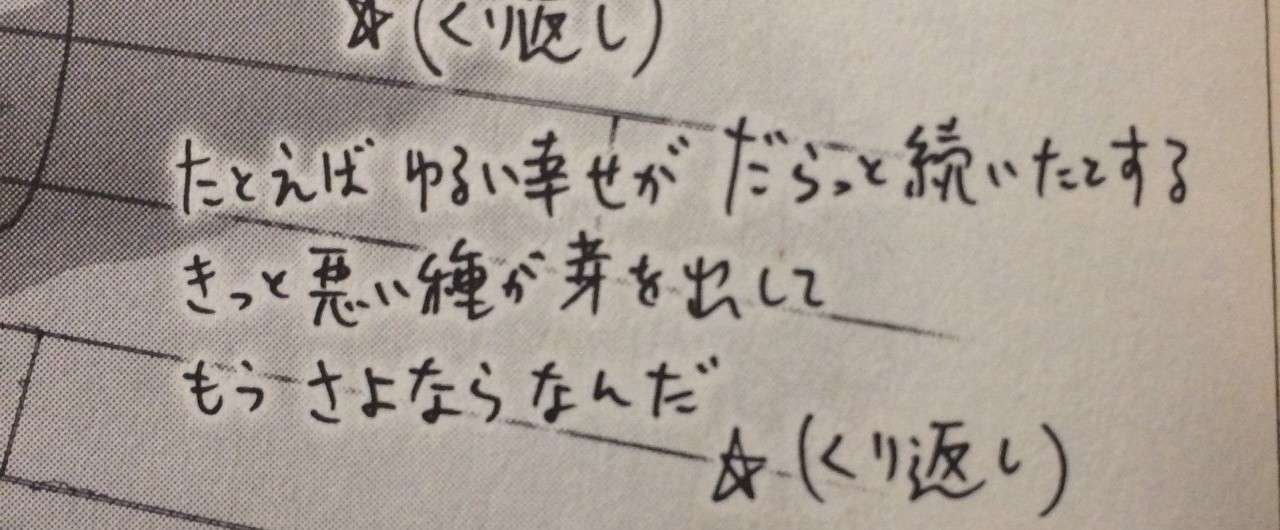 ☆(くり返し)
たとえば ゆるい幸せが だらっと続いたとする
きっと 悪い種が 芽を出して
もう さよなら なんだ
☆(くり返し)